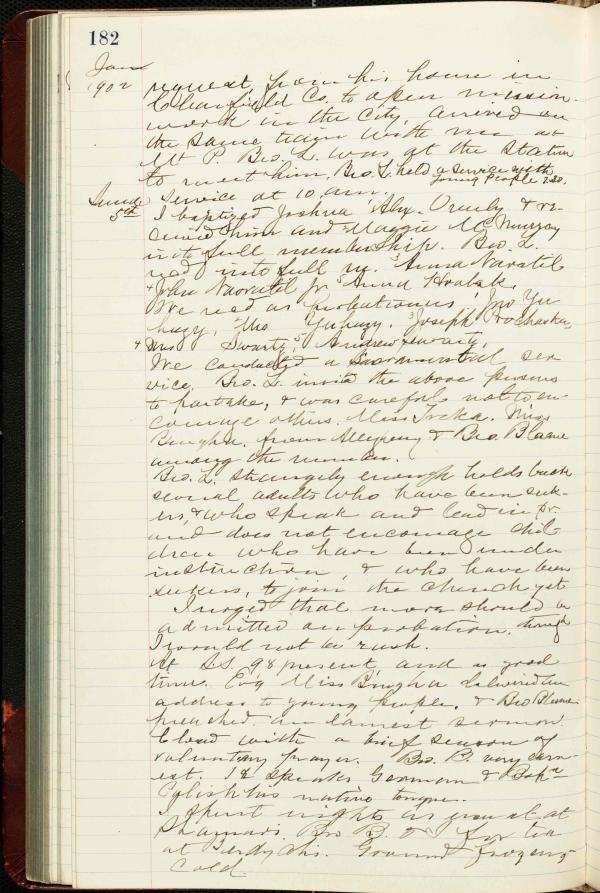 182
Jan
1902
request from his home in
Clearfield Co. to open mission
work in the city, arrived on
the same train with me at
Mt P. Bro. L. was at the station
to meet him. Bro. L. held a service with
young People 7.30.
Sund. 5th
Service at 10 am.
I baptized Joshua Alex. & re-
ceived him and Maggie McMurray
into full membership. Bro. L.
red into full m. 3 Anna Navratil
4 John Navratil Jr 5 Anna
We recd as Probationers, 1 Jno Yu
hazy, 2 Tho Yuhazy. 3 Joseph Prochaska,
4 Mrs Swartz, 5 Andrew
We conducted a Sacramental ser
vice. Bro. L. invited the above persons
to partake, & was careful not to en
courage others. Miss Trcka. Miss
from Allegheny & Bro. B
among the number.
Bro. L. strangely enough holds back
several adults who have been seek-
ers, & who speak and lead in pr.
and does not encourage chil
dren who have been under
instruction, & who have been
seekers, to join the church yet
I urged that more should be
admitted on probation. though
I would not be rash.
At S.S. 98 present, and a good
time. Ev'g Miss delivered an
address to young people, & Bro
preached an earnest sermon.
Closed with a brief season of
voluntary prayer. Bro. B. very earn
est. He speaks German &
his native tongue.
I spent nights as usual at
Bro B. & I for tea
at Ground frozen &
Cold.